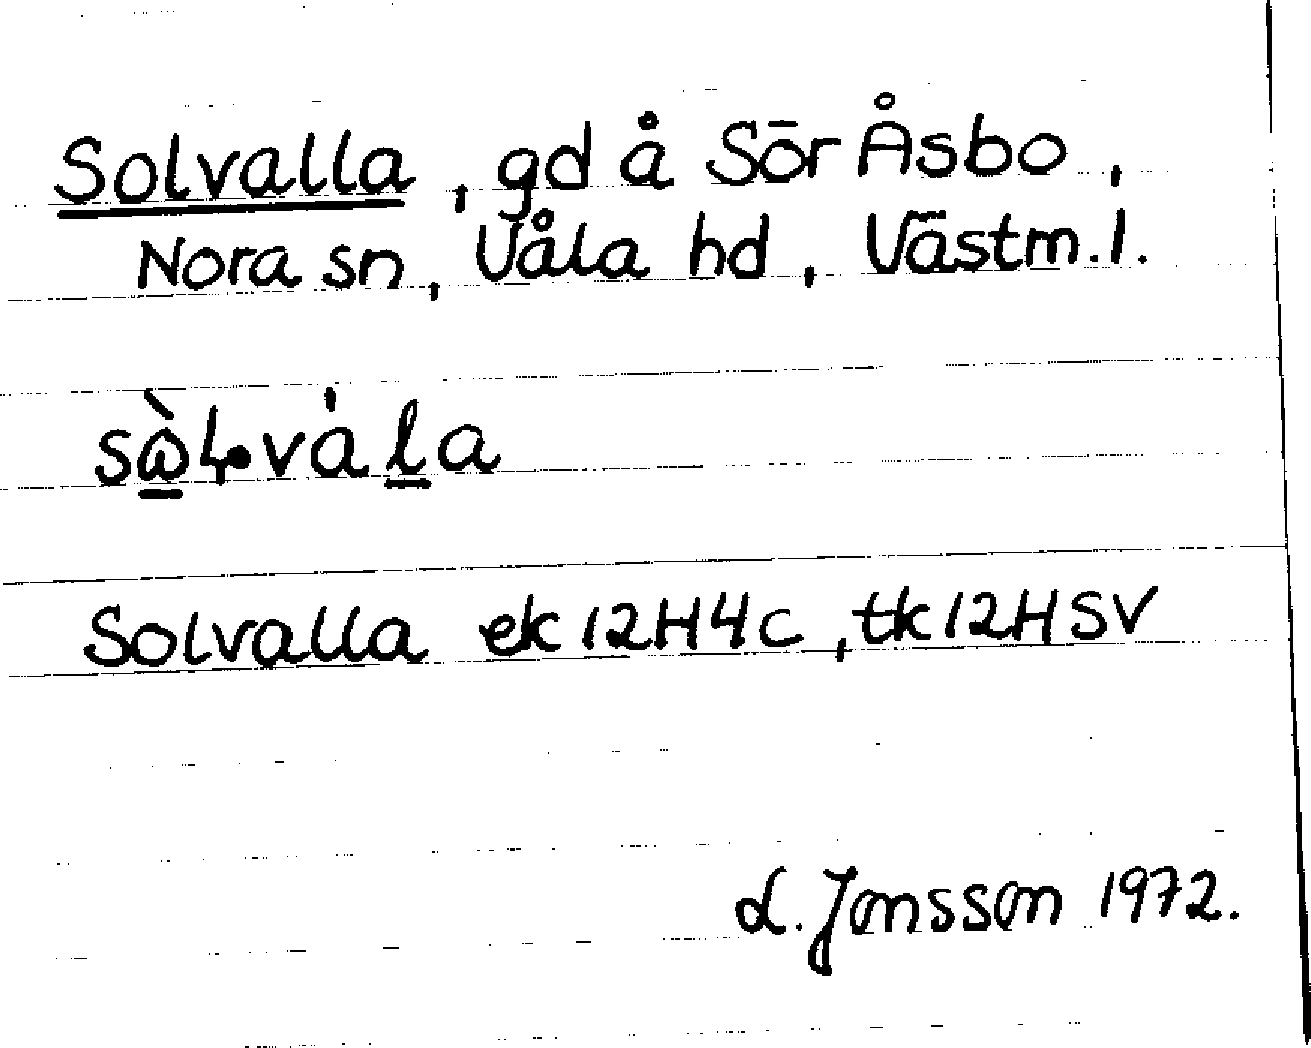 Solvalla, gd å Sör Åsbo,
Nora sn, Våla hd, Västm.l.
Solvalla ek 12H4c, tk12HSV
L. Jonsson 1972.